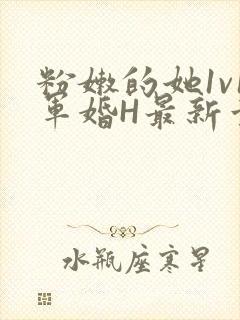 粉嫩的她1v1
军婚H最新章
水瓶座寒星